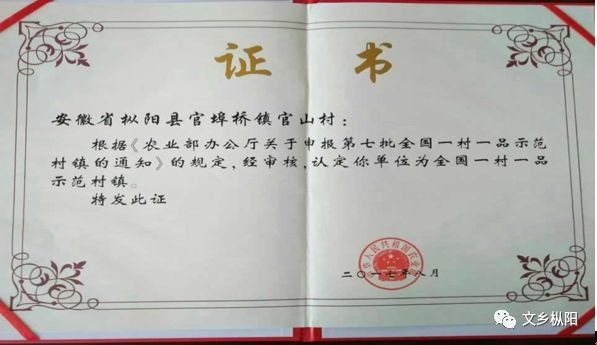 证 书
安徽省枞阳县官埠桥镇官山村：
根据《农业部办公厅关于申报第七批全国一村一品示范
村镇的通知》的规定，经审核，认定你单位为全国一村一品
示范村镇。
特发此证
中华人民共和国农业部
二〇一七年八月
文乡枞阳